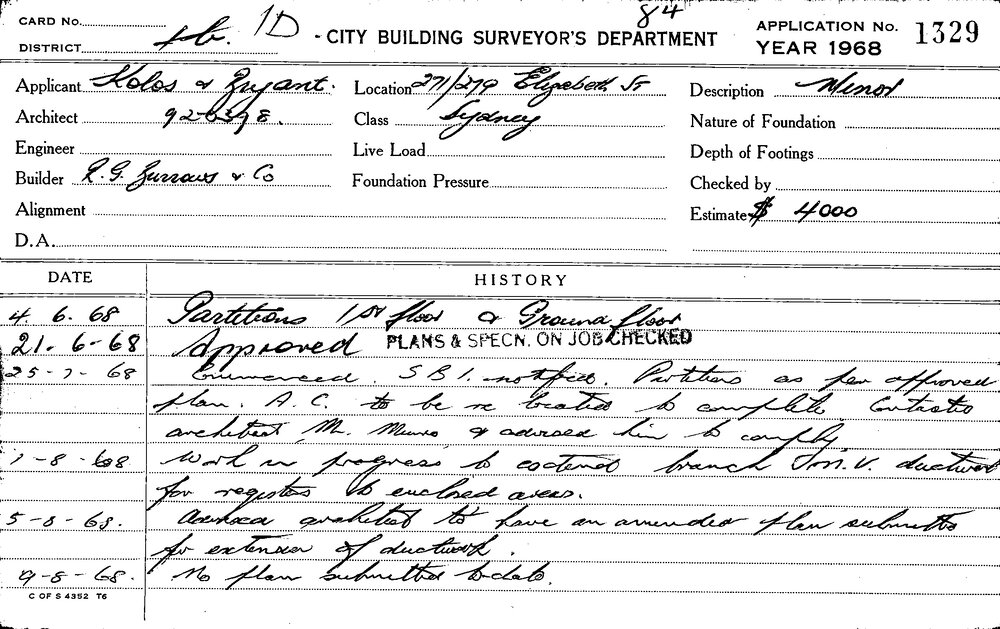 84
CARD No. 1D - CITY BUILDING SURVEYOR'S DEPARTMENT APPLICATION No. 1329
DISTRICT YEAR 1968
Applicant Kolos & Bryant. Location 271/279 Elizabeth St Description Minor
Architect 92-6398. Class Sydney Nature of Foundation
Engineer Live Load Depth of Footings
Builder R.G. Burrows & Co Foundation Pressure Checked by
Alignment Estimate $ 4000
D.A.
DATE HISTORY
4. 6. 68 Partitions 1st floor & Ground floor
21. 6-68 Approved PLANS & SPECN. ON JOB CHECKED
25-7-68 Commenced. S B I. notified. Partitions as per approved
plan. A.C. to be re to complete. Contacted
architect Mr. Munro & advised him to comply
1-8-68 Work in progress to extend branch M.V. ductwork
for registers to enclosed areas.
5-8-68. Advised architect to have an amended plan submitted
for extension of ductwork.
9-8-68. No plan submitted to date.
C OF S 4352 T6